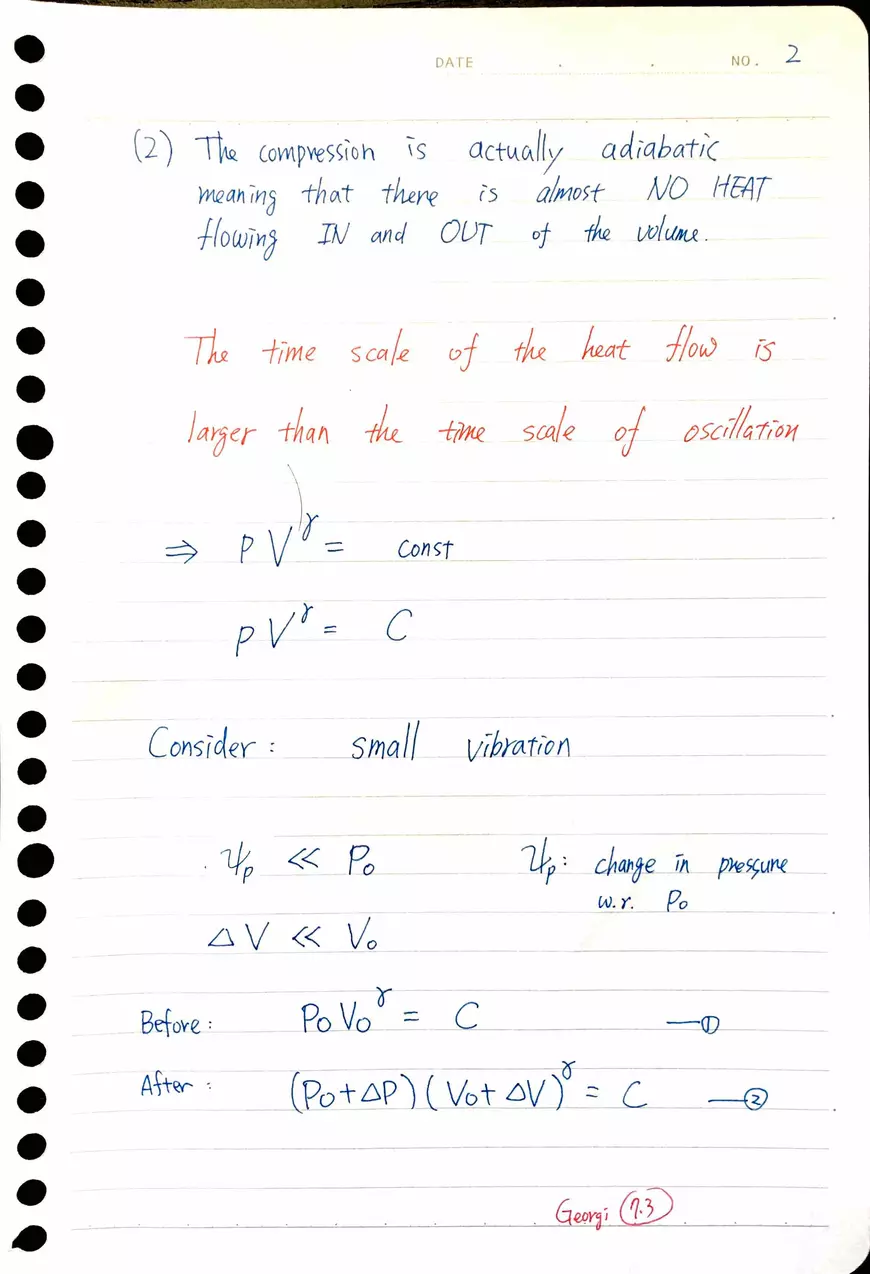 DATE . . NO. 2
(2) The compression is actually adiabatic
meaning that there is almost NO HEAT
flowing IN and OUT of the volume.
The time scale of the heat flow is
larger than the time scale of oscillation
⇒ PV^γ = const
PV^γ = C
Consider : small vibration
ψ_p << P₀ ψ_p : change in pressure
w.r. P₀
ΔV << V₀
Before : P₀V₀^γ = C —①
After : (P₀+ΔP)(V₀+ΔV)^γ = C —②
Georgi 7.3